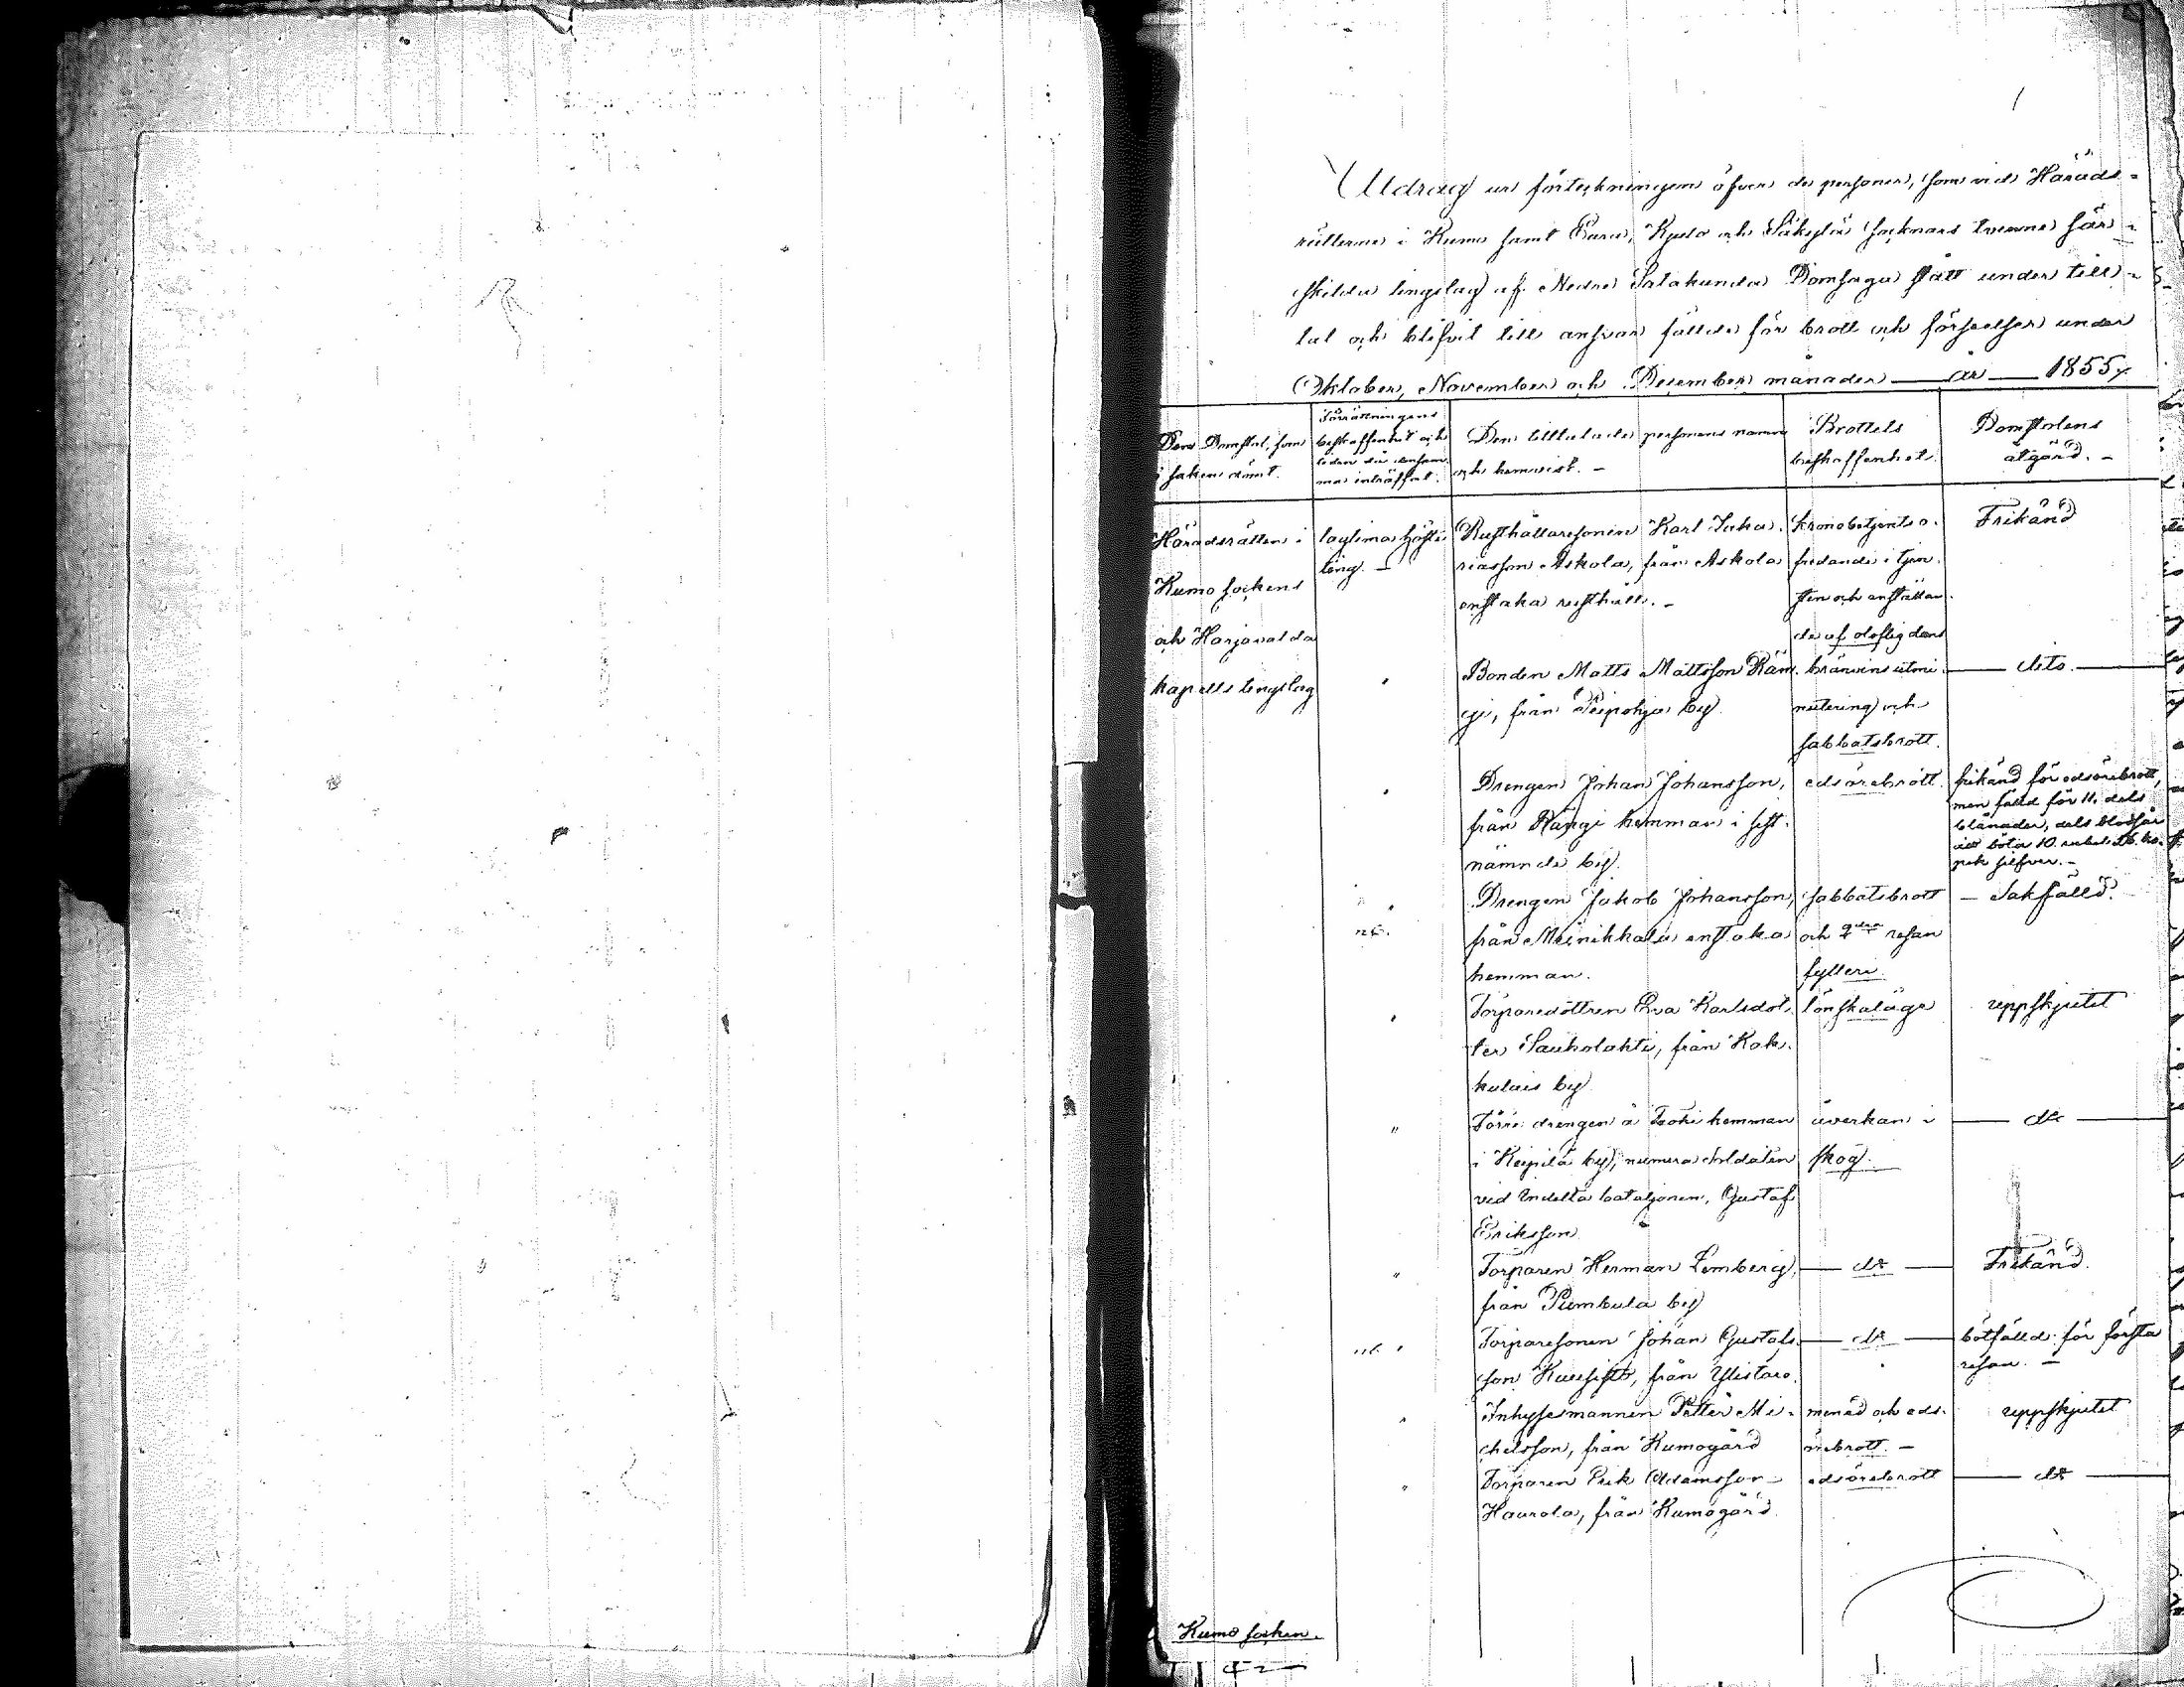 1
Utdrag ur förteckningen öfver de personer, som vid Härads-
rätterne i Kumo samt Eura, Kjulo och Säkylä socknars tvenne sär-
skilda tingslag af Nedre Satakunda Domsaga stått under till-
tal och blifvit till answar fällde för brott och förseelser under
Oktober, November och December månader — år — 1855.
Den Domstol, som
i saken dömt.
Förrättningens
beskaffenhet och
tiden då densam-
ma inträffat.
Den tilltalade personens namn
och hemvist. –
Brottets
beskaffenhet.
Domstolens
åtgärd. –
Häradsrätten i
Kumo sockens
och Harjavalda
kapells tingslag
lagtima höste
ting. –
Rusthållaresonen Karl Zacha-
riasson Askola, från Askola
enstaka rusthåll. –
kronobetjents o-
fredande i tjen-
sten och anställan-
de af oloflig dans
Frikänd
Bonden Matts Mattsson Rän-
gi, från Peipohja by
bränvins utmi-
nutering och
sabbatsbrott.
— dito. —
Drengen Johan Johansson,
från Rängi hemman i sist-
nämnde by.
edsörebrott.
frikänd för edsörebrott,
men fälld för 11. dels
blånader, dels blodsår
att böta 10. rubel 56. ko-
pek silfver. –
Drengen Jakob Johansson,
från Meinikkala enstaka
hemman.
sabbatsbrott
och resan
fylleri.
– Sakfälld.
Torparedottren Eva Karlsdot-
ter Saukolahti, från Kak-
kulais by
lönskaläge
uppskjutet
Förre drengen å Tooki hemman
i Keipilä by, numera soldaten
vid Indelta bataljonen, Gustaf
Eriksson
åverkan i
skog.
— do —
Torparen Herman Lemberg,
från Pumbula by
— do —
Frikänd.
Torparesonen Johan Gustafs-
son Kuusisto, från Ylistaro.
— do —
bötfälld för första
resan. –
Inhysesmannen Petter Mi-
chelsson, från Kumogård
mened och eds-
örebrott. –
uppskjutet
Torparen Erik Adamsson
Haurola, från Kumogård.
edsörebrott
— do —
Kumo socken.